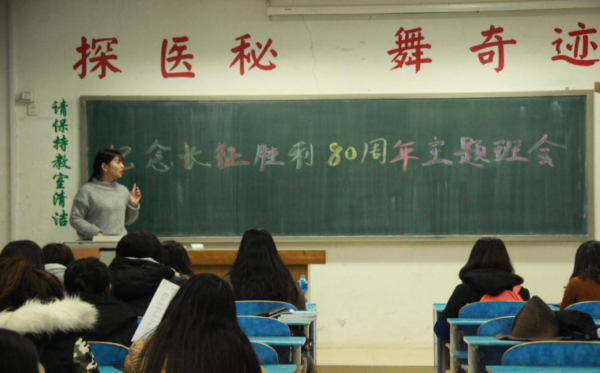 探医秘 舞奇迹
请保持教室清洁
纪念长征胜利80周年主题班会